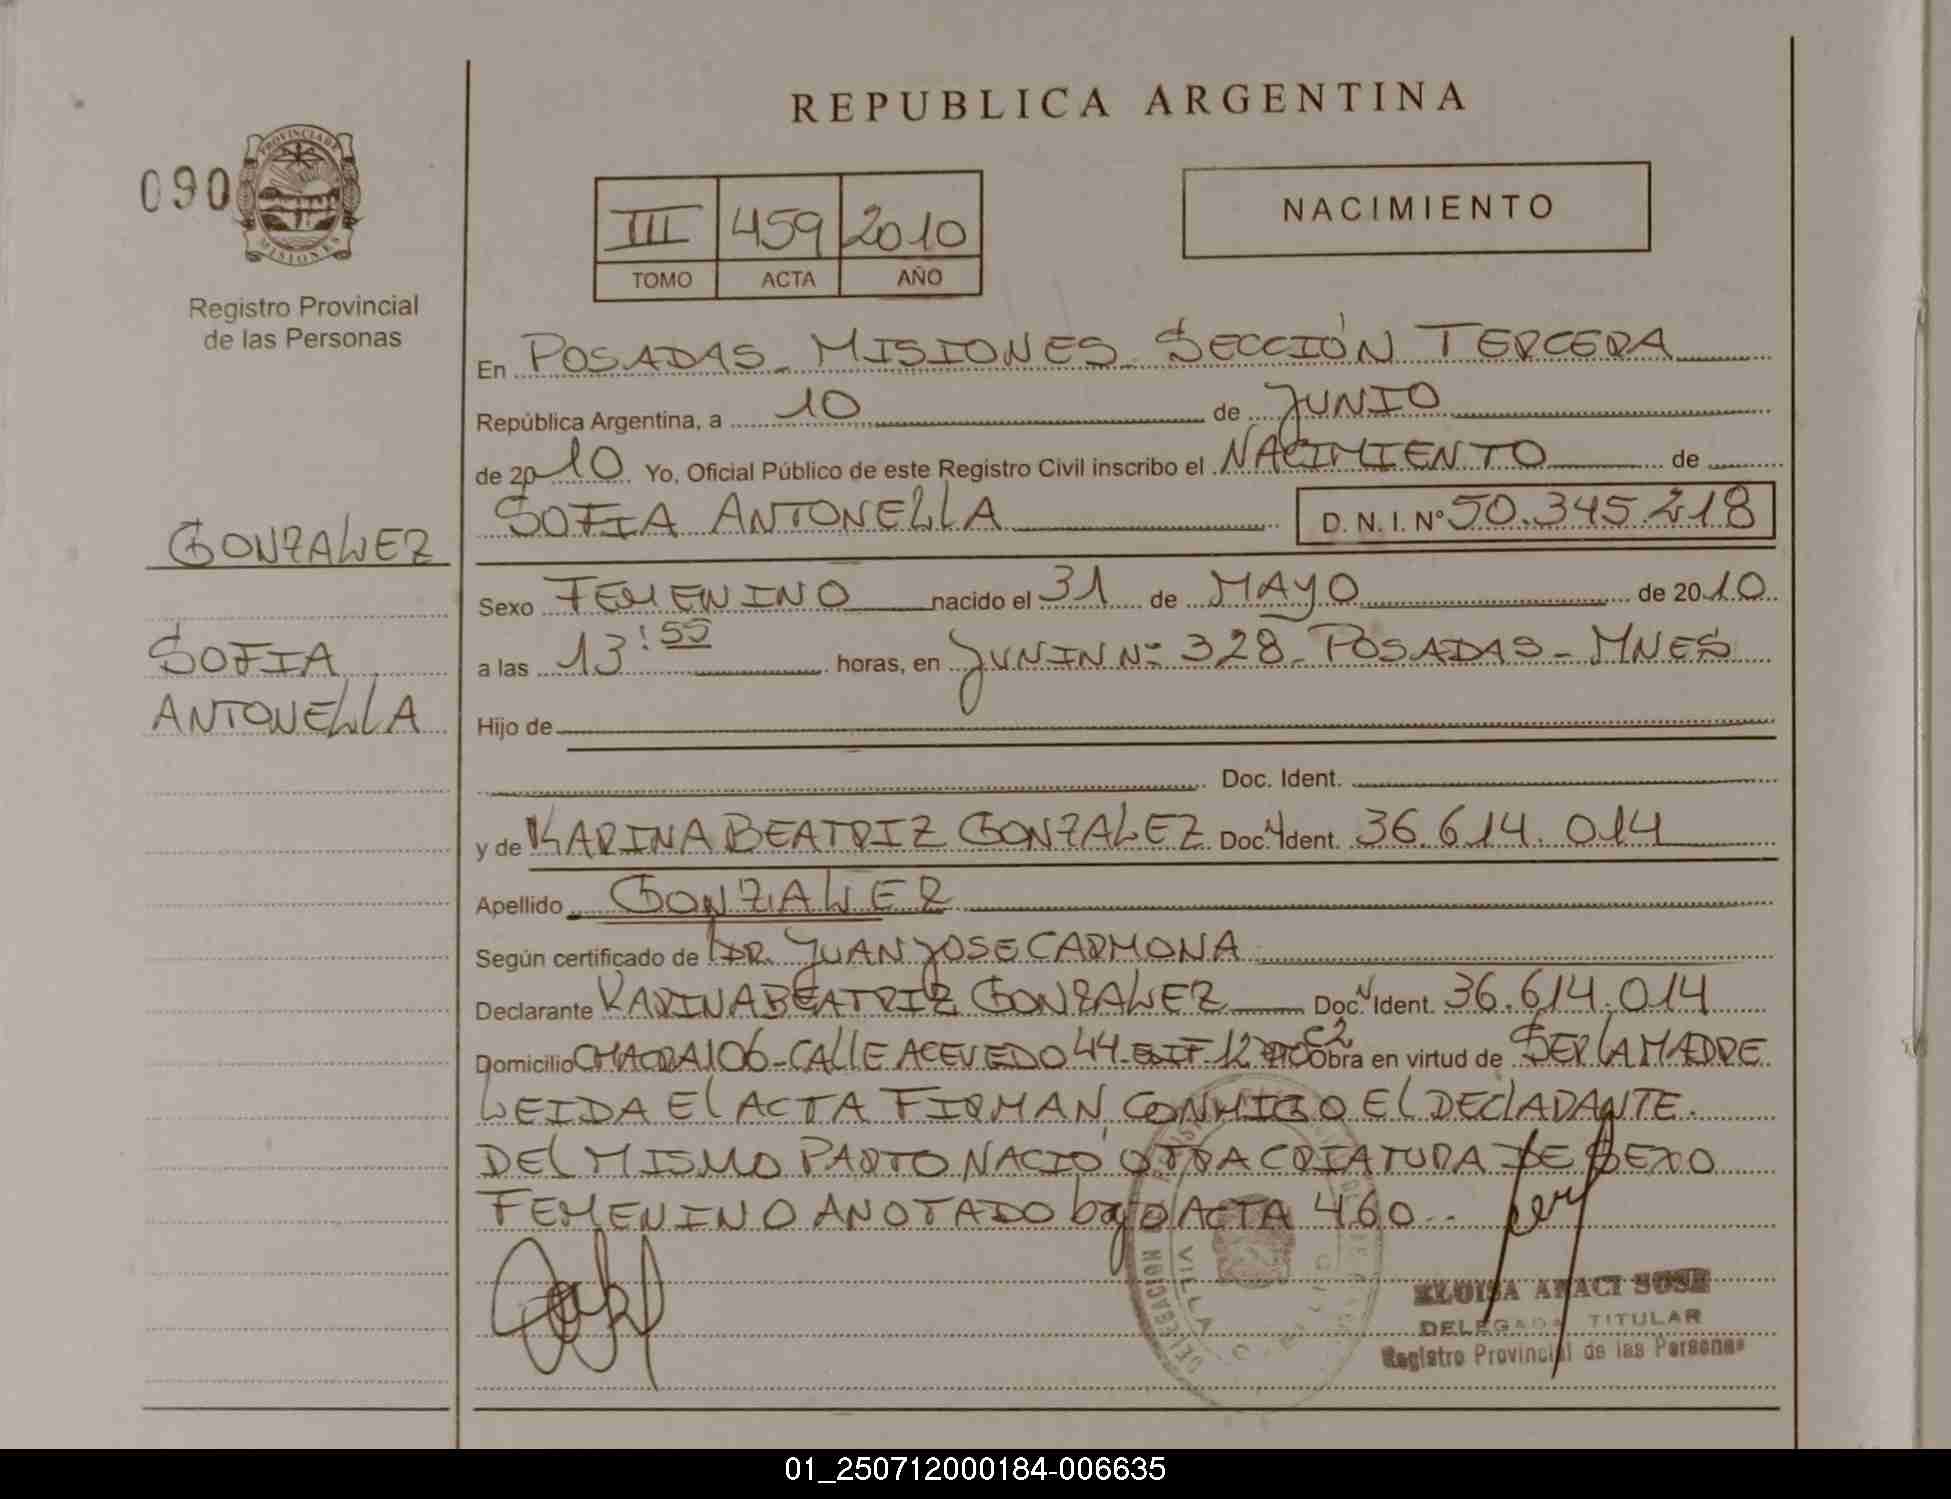 REPUBLICA ARGENTINA
090
PROVINCIA DE
MISIONES
Registro Provincial
de las Personas
III 459 2010
TOMO ACTA AÑO
NACIMIENTO
En POSADAS - MISIONES - SECCIÓN TERCERA
República Argentina, a 10 de JUNIO
de 2010 Yo, Oficial Público de este Registro Civil inscribo el NACIMIENTO de
SOFIA ANTONELLA D. N. I. Nº 50.345.218
GONZALEZ
SOFIA
ANTONELLA
Sexo FEMENINO nacido el 31 de MAYO de 2010
a las 13:55 horas, en JUNIN Nº 328 - POSADAS - MNES
Hijo de
Doc. Ident.
y de KARINA BEATRIZ GONZALEZ Doc. Ident. 36.614.014
Apellido GONZALEZ
Según certificado de DR. JUAN JOSE CARMONA
Declarante KARINA BEATRIZ GONZALEZ Doc. Ident. 36.614.014
Domicilio CHACRA 106 - CALLE ACEVEDO 44 - EDIF 12 C2 Obra en virtud de SER LA MADRE
LEIDA El ACTA FIRMAN CONMIGO El DEClARANTE.
DEL MISMO PARTO NACIO OTRA CRIATURA DE SEXO
FEMENINO ANOTADO bajo ACTA 460
DELEGACION VILLA
ELOISA ARACI SOSE
DELEGADA TITULAR
Registro Provincial de las Personas
01_250712000184-006635